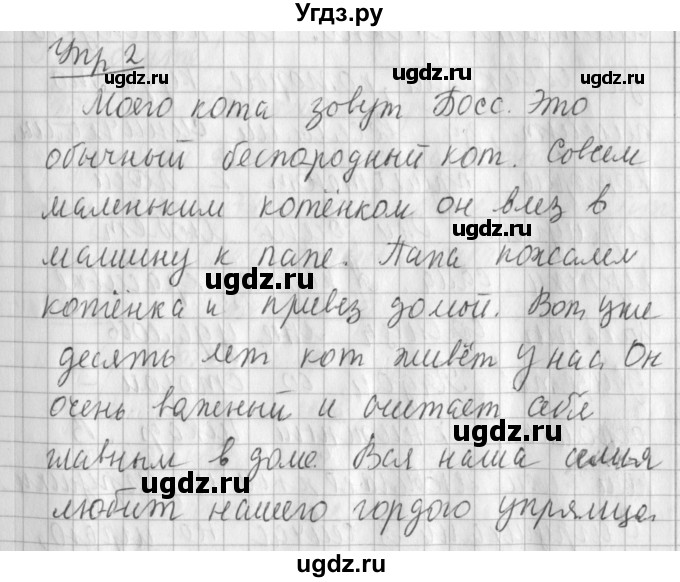 Угдз.ру
Упр 2
ugdz.ru ugdz.ru
Моего кота зовут Босс. Это
обычный беспородный кот. Совсем
ugdz.ru ugdz.ru
маленьким котёнком он влез в
машину к папе. Папа пожалел
ugdz.ru
котёнка и привез домой. Вот уже
десять лет кот живёт у нас. Он
ugdz.ru ugdz.ru
очень важный и считает себя
главным в доме. Вся наша семья
ugdz.ru
любит нашего гордого упрямца.
ugdz.ru ugdz.ru
Угдз.ру